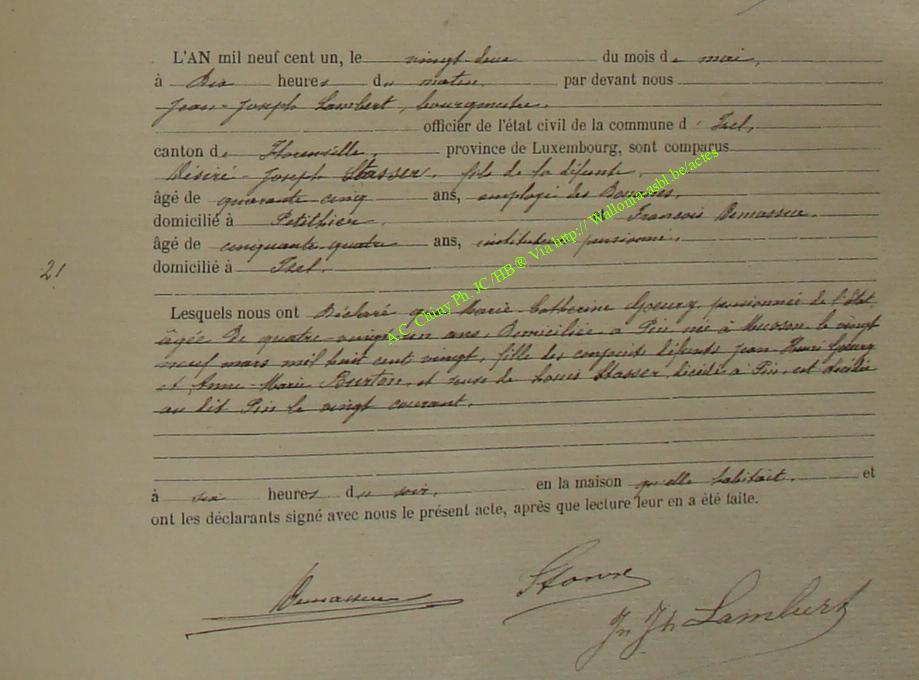 L'AN mil neuf cent un, le vingt deux du mois de mai,
à dix heures du matin, par devant nous
Jean-Joseph Lambert, bourgmestre,
officier de l'état civil de la commune d'Izel,
canton de Florenville, province de Luxembourg, sont comparus
Désiré-Joseph Stasser, fils de la défunte,
âgé de quarante cinq ans, employé des Douanes,
domicilié à Petithier et François Demasseu,
âgé de cinquante quatre ans, instituteur pensionné,
domicilié à Izel.
21
Lesquels nous ont déclaré que Marie Catherine Goeury, pensionnée de l'état
âgée de quatre-vingt un ans, domiciliée à Pin, née à Musson le vingt
neuf mars mil huit cent vingt, fille des conjoints défunts Jean Henri Goeury
et Anne-Marie Burton, et veuve de Louis Stasser, décédé à Pin, est décédée
au dit Pin le vingt courant,
à six heures du soir, en la maison qu'elle habitait, et
ont les déclarants signé avec nous le présent acte, après que lecture leur en a été faite.
Jn Jh Lambert
A.C. Chiny Ph. JC /HB ® Via http:// Wallonia-asbl be/actes